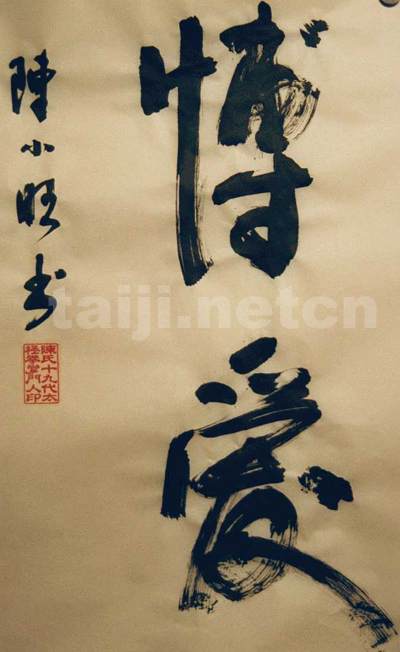 博愛
陳小旺书
陳氏十九代太
極拳掌門人印
taiji.netcn